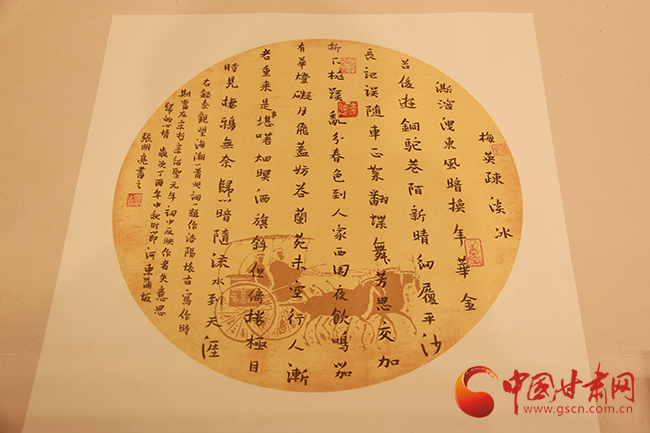 梅英疎淡冰
澌溶洩東風暗換年華金
谷俊遊銅駝巷陌新晴細履平沙
長記误隨車正絮翻蝶舞芳思交加
柳下桃蹊亂分春色到人家西園夜飲鳴笳
有華燈礙月飛蓋妨花蘭苑未空行人漸
老重来是事堪嗟烟暝酒旗斜但倚楼極目
時見棲鴉無奈歸心暗隨流水到天涯
右錄秦觀望海潮一首此詞一題作洛陽懷古寫作時
期當在宋哲宗紹聖元年詞中反映作者失意思
歸的心情 歲次丁酉年中秋时節河東
張明亮書之
中国甘肃网
www.gscn.com.cn